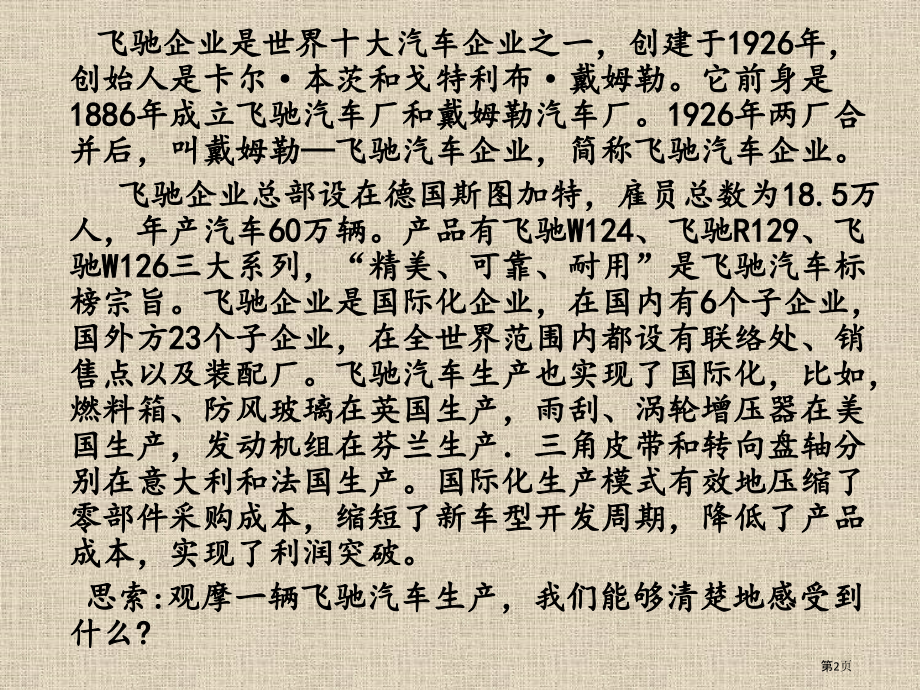 飞驰企业是世界十大汽车企业之一，创建于1926年，
创始人是卡尔·本茨和戈特利布·戴姆勒。它前身是
1886年成立飞驰汽车厂和戴姆勒汽车厂。1926年两厂合
并后，叫戴姆勒—飞驰汽车企业，简称飞驰汽车企业。
飞驰企业总部设在德国斯图加特，雇员总数为18.5万
人，年产汽车60万辆。产品有飞驰W124、飞驰R129、飞
驰W126三大系列，“精美、可靠、耐用”是飞驰汽车标
榜宗旨。飞驰企业是国际化企业，在国内有6个子企业，
国外方23个子企业，在全世界范围内都设有联络处、销
售点以及装配厂。飞驰汽车生产也实现了国际化，比如，
燃料箱、防风玻璃在英国生产，雨刮、涡轮增压器在美
国生产，发动机组在芬兰生产．三角皮带和转向盘轴分
别在意大利和法国生产。国际化生产模式有效地压缩了
零部件采购成本，缩短了新车型开发周期，降低了产品
成本，实现了利润突破。
思索:观摩一辆飞驰汽车生产，我们能够清楚地感受到
什么?
第2页